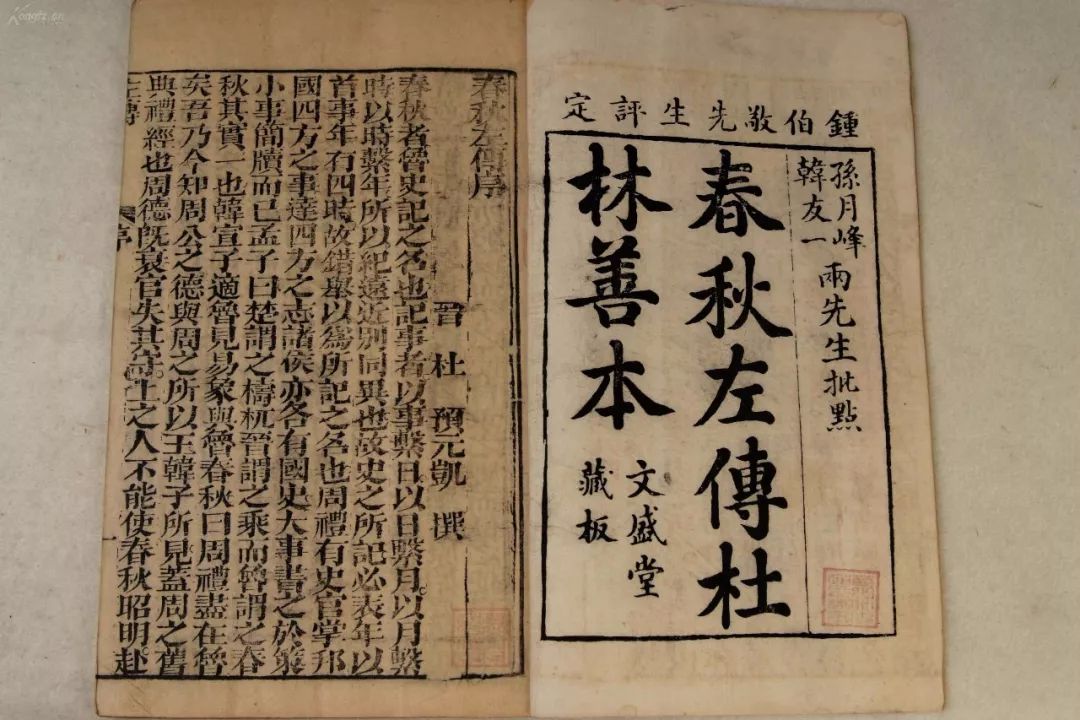 鍾伯敬先生評定
孫月峰
韓友一
兩先生批點
春秋左傳杜
林善本
文盛堂
藏板
春秋左傳序
晉 杜 預元凱 撰
春秋者魯史記之名也記事者以事繫日以日繫月以月繫
時以時繫年所以紀遠近別同異也故史之所記必表年以
首事年有四時故錯舉以爲所記之名也周禮有史官掌邦
國四方之事達四方之志諸侯亦各有國史大事書之於策
小事簡牘而已孟子曰楚謂之檮杌晉謂之乘而魯謂之春
秋其實一也韓宣子適魯見易象與魯春秋曰周禮盡在魯
矣吾乃今知周公之德與周之所以王韓子所見蓋周之舊
典禮經也周德旣衰官失其守上之人不能使春秋昭明赴
左傳 序 一